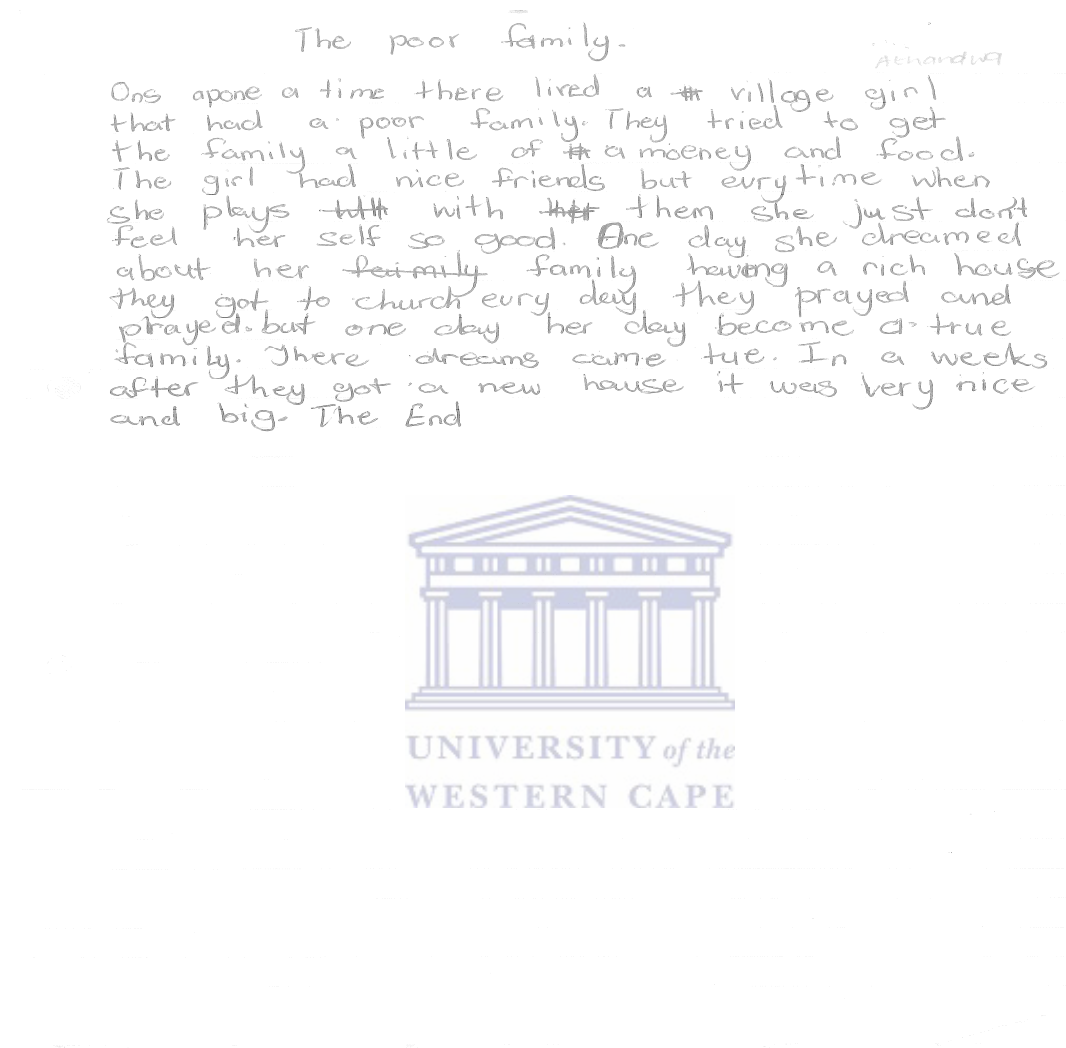 The poor family.
Athandwa
Ons apone a time there lived a village girl
that had a poor family. They tried to get
the family a little of a moeney and food.
The girl had nice friends but evrytime when
she plays with them she just don't
feel her self so good. One day she dreamed
about her family family having a rich house
they got to church evry day they prayed and
prayed. but one day her day become a true
family. There dreams came tue. In a weeks
after they got a new hause it was very nice
and big. The End
UNIVERSITY of the
WESTERN CAPE